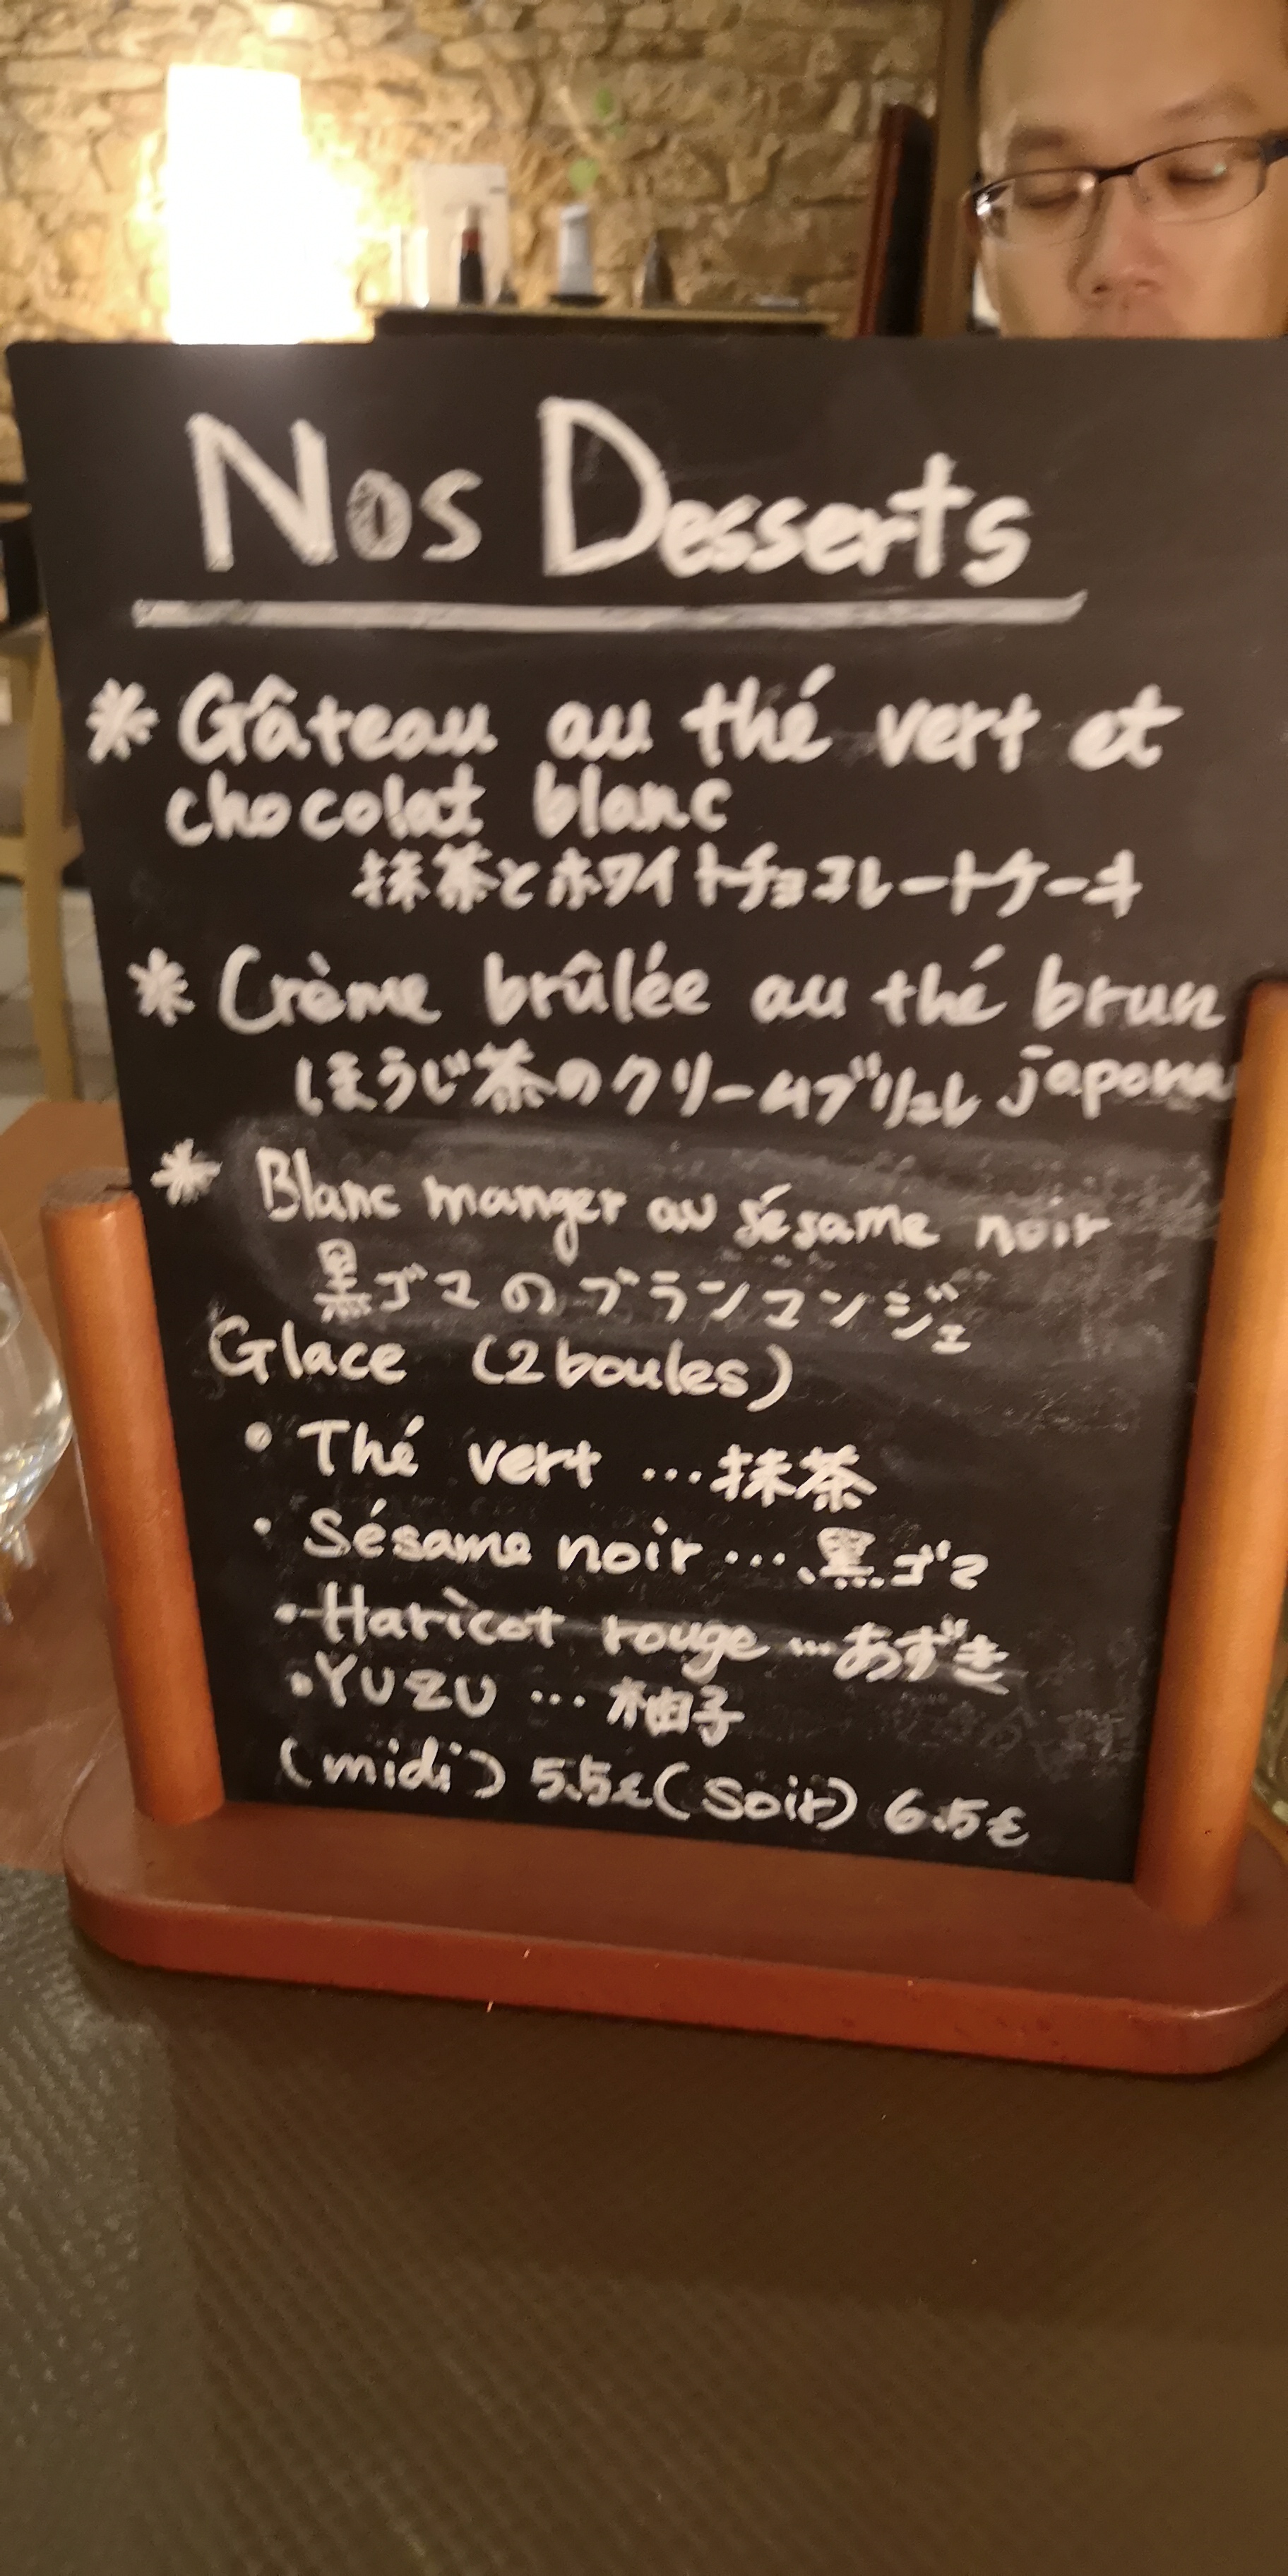 Nos Desserts
* Gâteau au thé vert et
chocolat blanc
抹茶とホワイトチョコレートケーキ
* Crème brûlée au thé brun
ほうじ茶のクリームブリュレ japona
* Blanc manger au sésame noir
黒ゴマのブランマンジェ
Glace (2 boules)
• Thé vert ... 抹茶
• Sésame noir ... 黒ゴマ
• Haricot rouge ... あずき
• YUZU ... 柚子
(midi) 5.5€ (soir) 6.5€